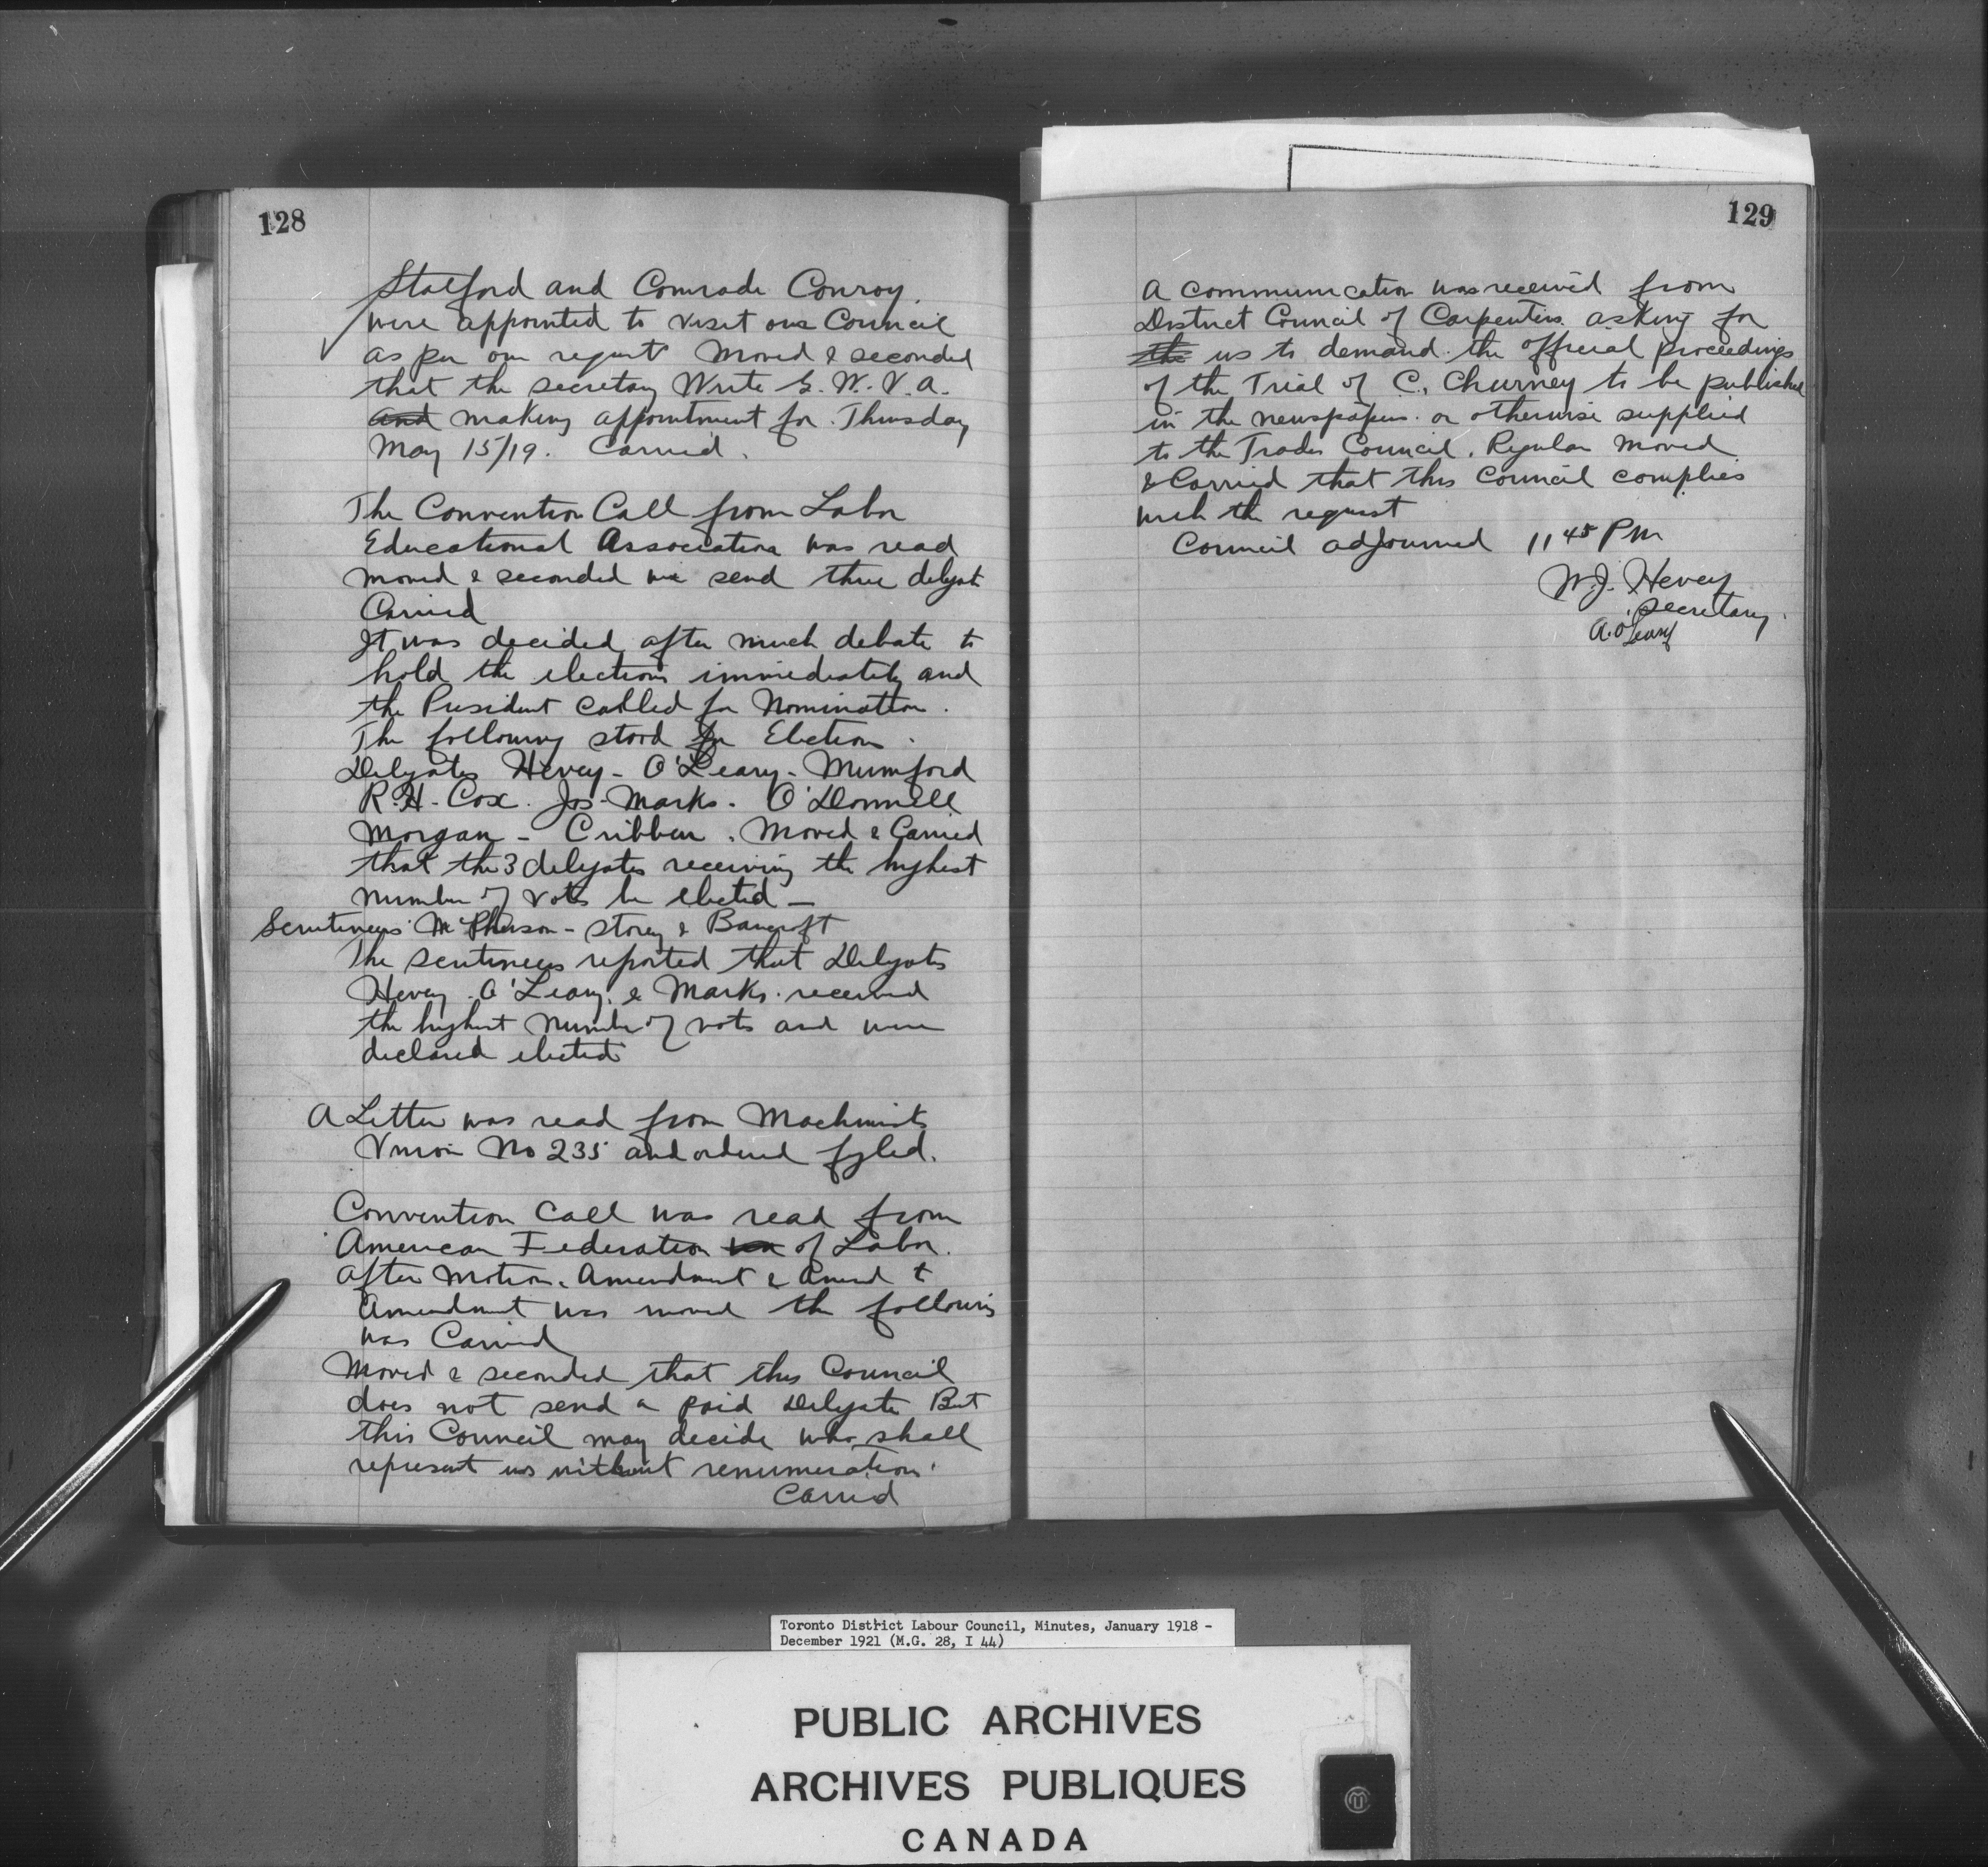 128
Stalford and Comrade Conroy.
were appointed to visit our Council
as per our request Moved & seconded
that the secretary Write G. W. V. A.
and making appointment for Thursday
May 15/19. Carried.
The Convention Call from Labor
Educational Association was read
moved & seconded we send three delegate
Carried
It was decided after much debate to
hold the elections immediately and
the President called for Nomination.
The following stood for Election.
Delegates Hevey - O'Leary - Mumford
R. H. Cox. Jos. Marks. O'Donnell
Morgan - Cribben. Moved & Carried
that the 3 delegates receiving the highest
number of votes be elected -
Scrutineers McPherson - Storey & Bancroft
The scrutineers reported that Delegates
Hevey. O'Leary. & Marks. received
the highest number of votes and were
declared elected
A Letter was read from Machinists
Union No 235 and ordered fyled.
Convention Call was read from
American Federation of Labor.
After Motion. Amendment & Amend t
Amendment was moved the following
was Carried
Moved & seconded that this Council
does not send a paid Delegate But
this Council may decide who shall
represent us without renumeration.
Carried
129
A communication was received from
District Council of Carpenters asking for
the us to demand the official proceedings
of the Trial of C. Churney to be published
in the newspapers or otherwise supplied
to the Trades Council. Regular Moved
& Carried that this Council complies
with the request
Council adjourned 11 45 PM
W. J. Hevey
Secretary.
A. O'Leary
Toronto District Labour Council, Minutes, January 1918 -
December 1921 (M.G. 28, I 44)
PUBLIC ARCHIVES
ARCHIVES PUBLIQUES
CANADA